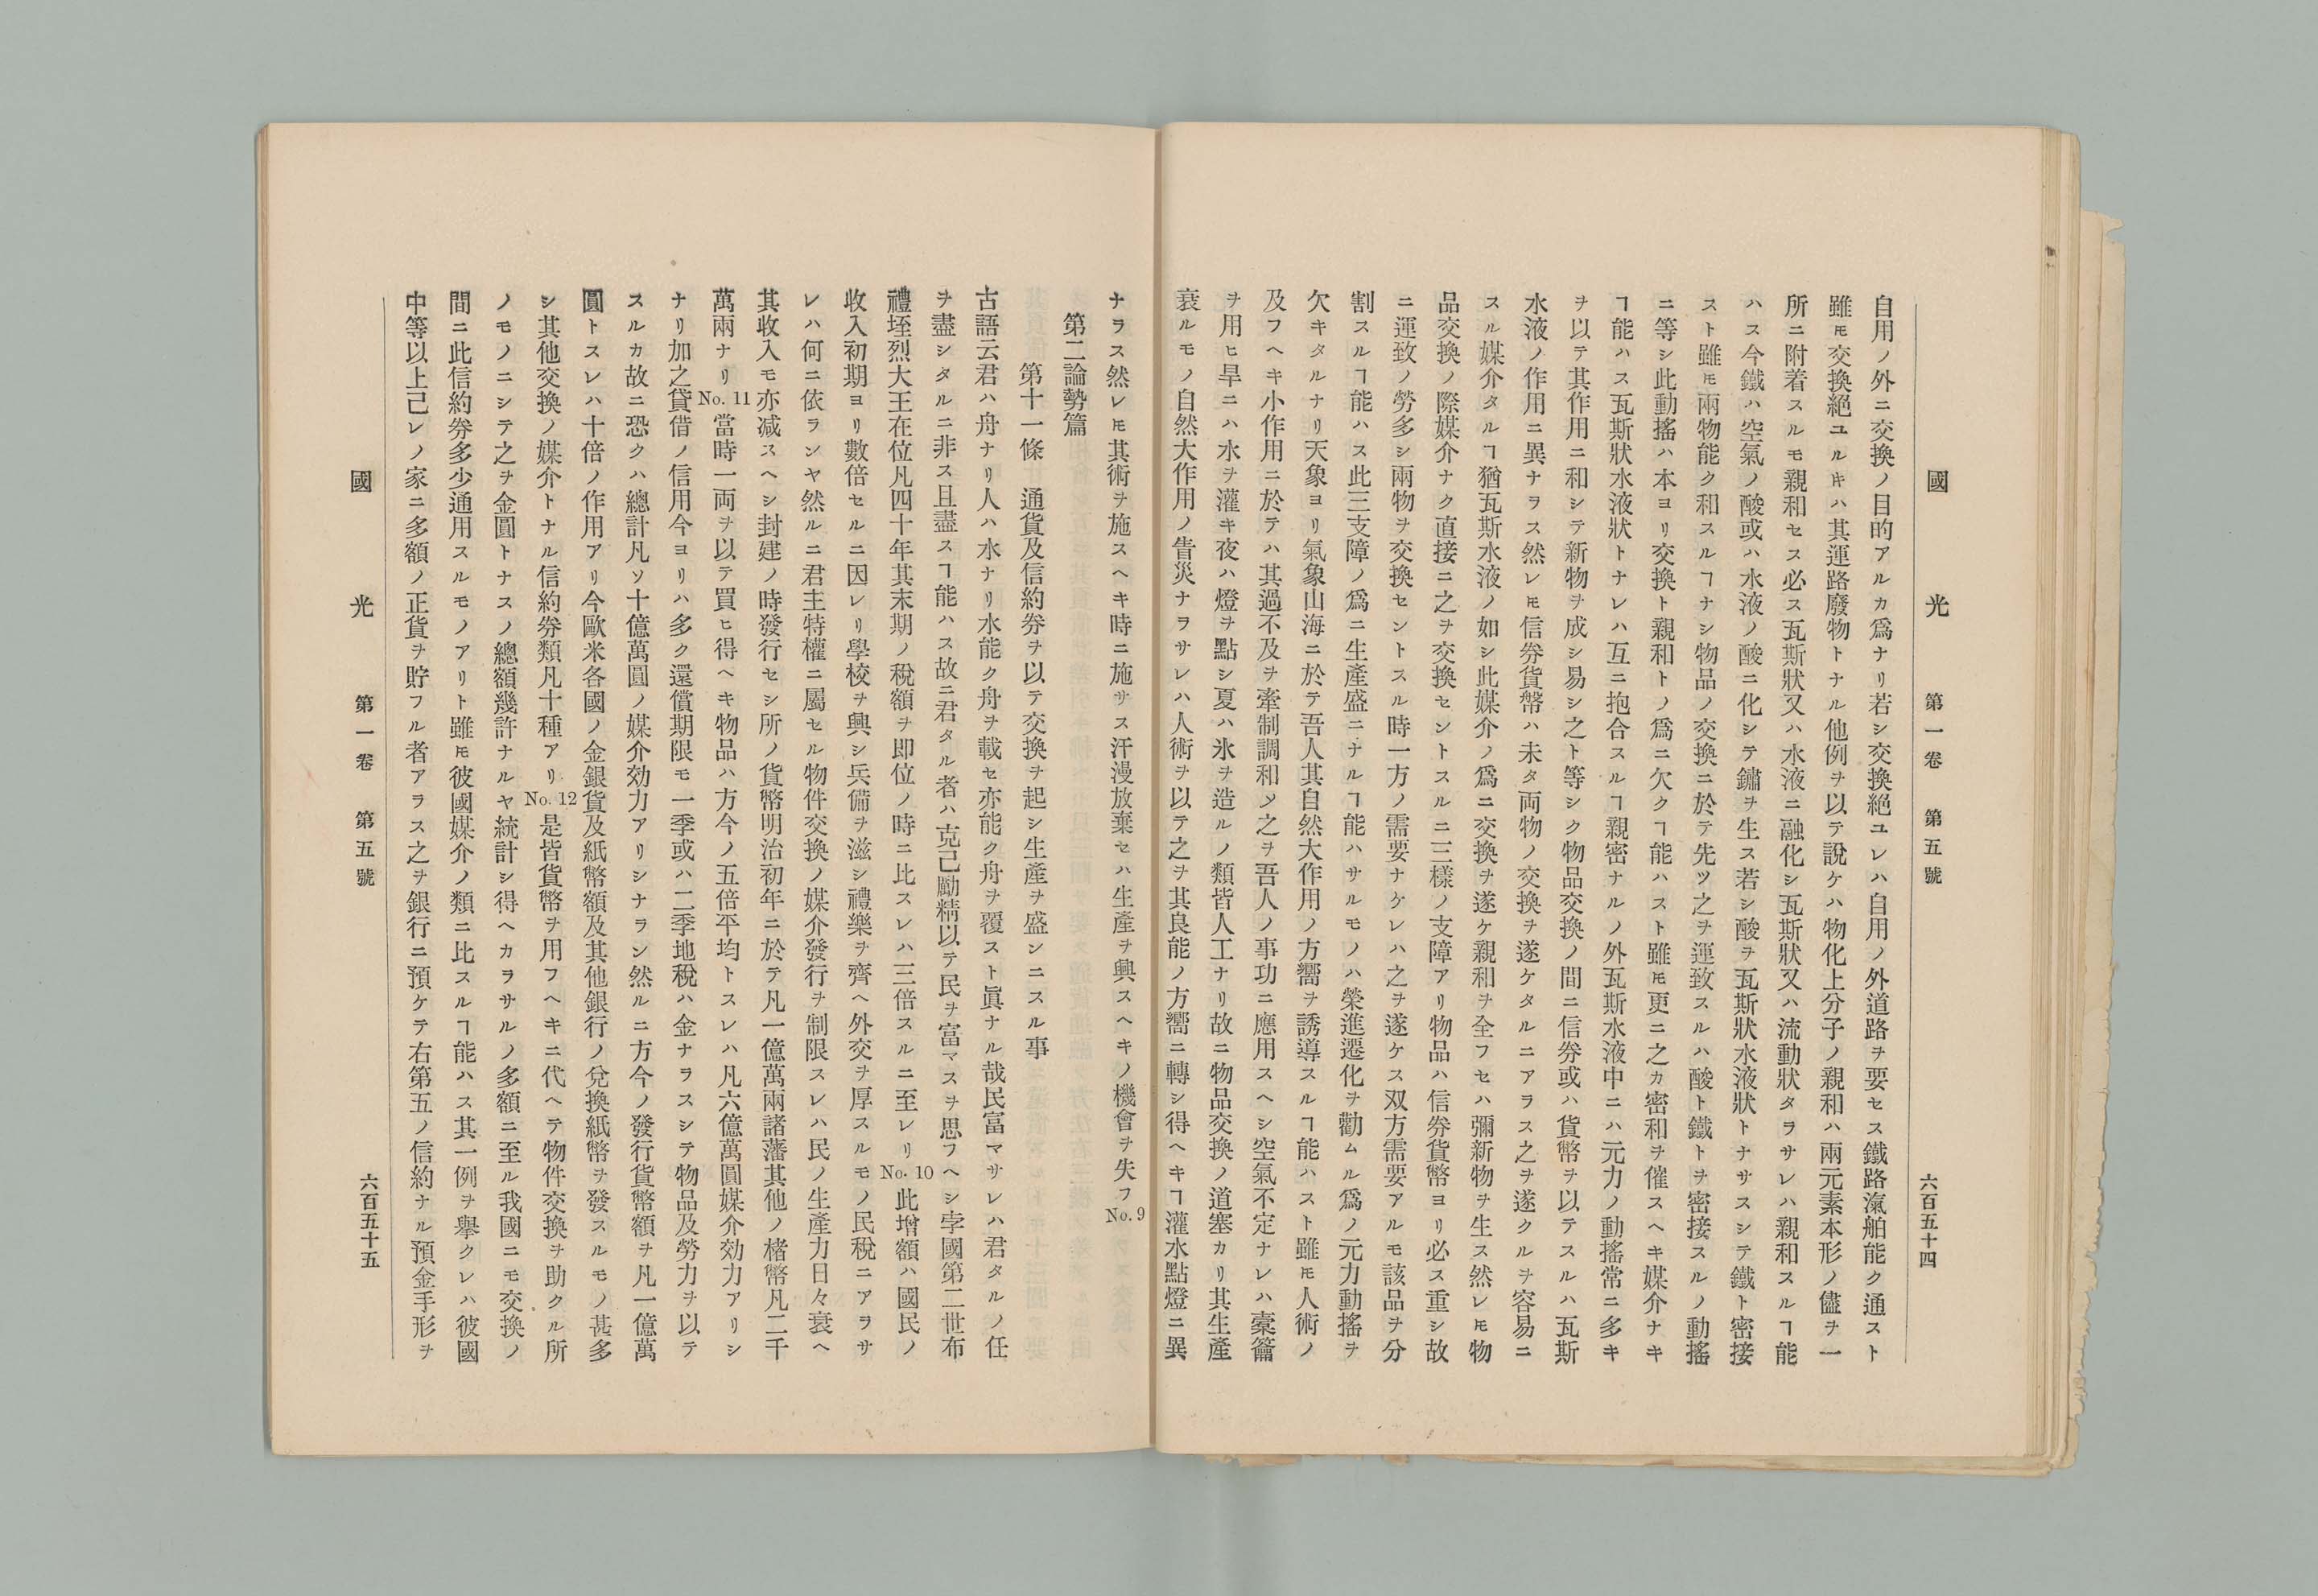 國光 第一卷 第五號 六百五十四
自用ノ外ニ交換ノ目的アルカ爲ナリ若シ交換絕ユレハ自用ノ外道路ヲ要セス鐵路滊舶能ク通スト
雖𪜈交換絕ユルキハ其運路廢物トナル他例ヲ以テ說ケハ物化上分子ノ親和ハ兩元素本形ノ儘ヲ一
所ニ附着スルモ親和セス必ス瓦斯狀又ハ水液ニ融化シ瓦斯狀又ハ流動狀タラサレハ親和スルヿ能
ハス今鐵ハ空氣ノ酸或ハ水液ノ酸ニ化シテ鏽ヲ生ス若シ酸ヲ瓦斯狀水液狀トナサスシテ鐵ト密接
スト雖𪜈兩物能ク和スルヿナシ物品ノ交換ニ於テ先ツ之ヲ運致スルハ酸ト鐵トヲ密接スルノ動搖
ニ等シ此動搖ハ本ヨリ交換ト親和トノ爲ニ欠クヿ能ハスト雖𪜈更ニ之カ密和ヲ催スヘキ媒介ナキ
ヿ能ハス瓦斯狀水液狀トナレハ互ニ抱合スルヿ親密ナルノ外瓦斯水液中ニハ元力ノ動搖常ニ多キ
ヲ以テ其作用ニ和シテ新物ヲ成シ易シ之ト等シク物品交換ノ間ニ信券或ハ貨幣ヲ以テスルハ瓦斯
水液ノ作用ニ異ナラス然レ𪜈信券貨幣ハ未タ両物ノ交換ヲ遂ケタルニアラス之ヲ遂クルヲ容易ニ
スル媒介タルヿ猶瓦斯水液ノ如シ此媒介ノ爲ニ交換ヲ遂ケ親和ヲ全フセハ彌新物ヲ生ス然レ𪜈物
品交換ノ際媒介ナク直接ニ之ヲ交換セントスルニ三樣ノ支障アリ物品ハ信券貨幣ヨリ必ス重シ故
ニ運致ノ勞多シ兩物ヲ交換セントスル時一方ノ需要ナケレハ之ヲ遂ケス双方需要アルモ該品ヲ分
割スルヿ能ハス此三支障ノ爲ニ生產盛ニナルヿ能ハサルモノハ榮進遷化ヲ勸ムル爲ノ元力動搖ヲ
欠キタルナリ天象ヨリ氣象山海ニ於テ吾人其自然大作用ノ方嚮ヲ誘導スルヿ能ハスト雖𪜈人術ノ
及フヘキ小作用ニ於テハ其過不及ヲ牽制調和〆之ヲ吾人ノ事功ニ應用スヘシ空氣不定ナレハ橐籥
ヲ用ヒ旱ニハ水ヲ灌キ夜ハ燈ヲ點シ夏ハ氷ヲ造ルノ類皆人工ナリ故ニ物品交換ノ道塞カリ其生產
衰ルモノ自然大作用ノ眚災ナヲサレハ人術ヲ以テ之ヲ其良能ノ方嚮ニ轉シ得ヘキヿ灌水點燈ニ異
ナラス然レ𪜈其術ヲ施スヘキ時ニ施サス汗漫放棄セハ生產ヲ興スヘキノ機會ヲ失フ No. 9
第二論勢篇
第十一條 通貨及信約券ヲ以テ交換ヲ起シ生產ヲ盛ンニスル事
古語云君ハ舟ナリ人ハ水ナリ水能ク舟ヲ載セ亦能ク舟ヲ覆スト眞ナル哉民富マサレハ君タルノ任
ヲ盡シタルニ非ス且盡スヿ能ハス故ニ君タル者ハ克己勵精以テ民ヲ富マスヲ思フヘシ孛國第二世布
禮垤烈大王在位凡四十年其末期ノ稅額ヲ即位ノ時ニ比スレハ三倍スルニ至レリ No. 10 此增額ハ國民ノ
收入初期ヨリ數倍セルニ因レリ學校ヲ興シ兵備ヲ滋シ禮樂ヲ齊ヘ外交ヲ厚スルモノ民稅ニアヲサ
レハ何ニ依ランヤ然ルニ君主特權ニ屬セル物件交換ノ媒介發行ヲ制限スレハ民ノ生產力日々衰ヘ
其收入モ亦減スヘシ封建ノ時發行セシ所ノ貨幣明治初年ニ於テ凡一億萬兩諸藩其他ノ楮幣凡二千
萬兩ナリ No. 11 當時一両ヲ以テ買ヒ得ヘキ物品ハ方今ノ五倍平均トスレハ凡六億萬圓媒介効力アリシ
ナリ加之貸借ノ信用今ヨリハ多ク還償期限モ一季或ハ二季地稅ハ金ナラスシテ物品及勞力ヲ以テ
スルカ故ニ恐クハ總計凡ソ十億萬圓ノ媒介効力アリシナラン然ルニ方今ノ發行貨幣額ヲ凡一億萬
圓トスレハ十倍ノ作用アリ今歐米各國ノ金銀貨及紙幣額及其他銀行ノ兌換紙幣ヲ發スルモノ甚多
シ其他交換ノ媒介トナル信約券類凡十種アリ No. 12 是皆貨幣ヲ用フヘキニ代ヘテ物件交換ヲ助クル所
ノモノニシテ之ヲ金圓トナスノ總額幾許ナルヤ統計シ得ヘカヲサルノ多額ニ至ル我國ニモ交換ノ
間ニ此信約券多少通用スルモノアリト雖𪜈彼國媒介ノ類ニ比スルヿ能ハス其一例ヲ擧クレハ彼國
中等以上己レノ家ニ多額ノ正貨ヲ貯フル者アラス之ヲ銀行ニ預ケテ右第五ノ信約ナル預金手形ヲ
國光 第一卷 第五號 六百五十五